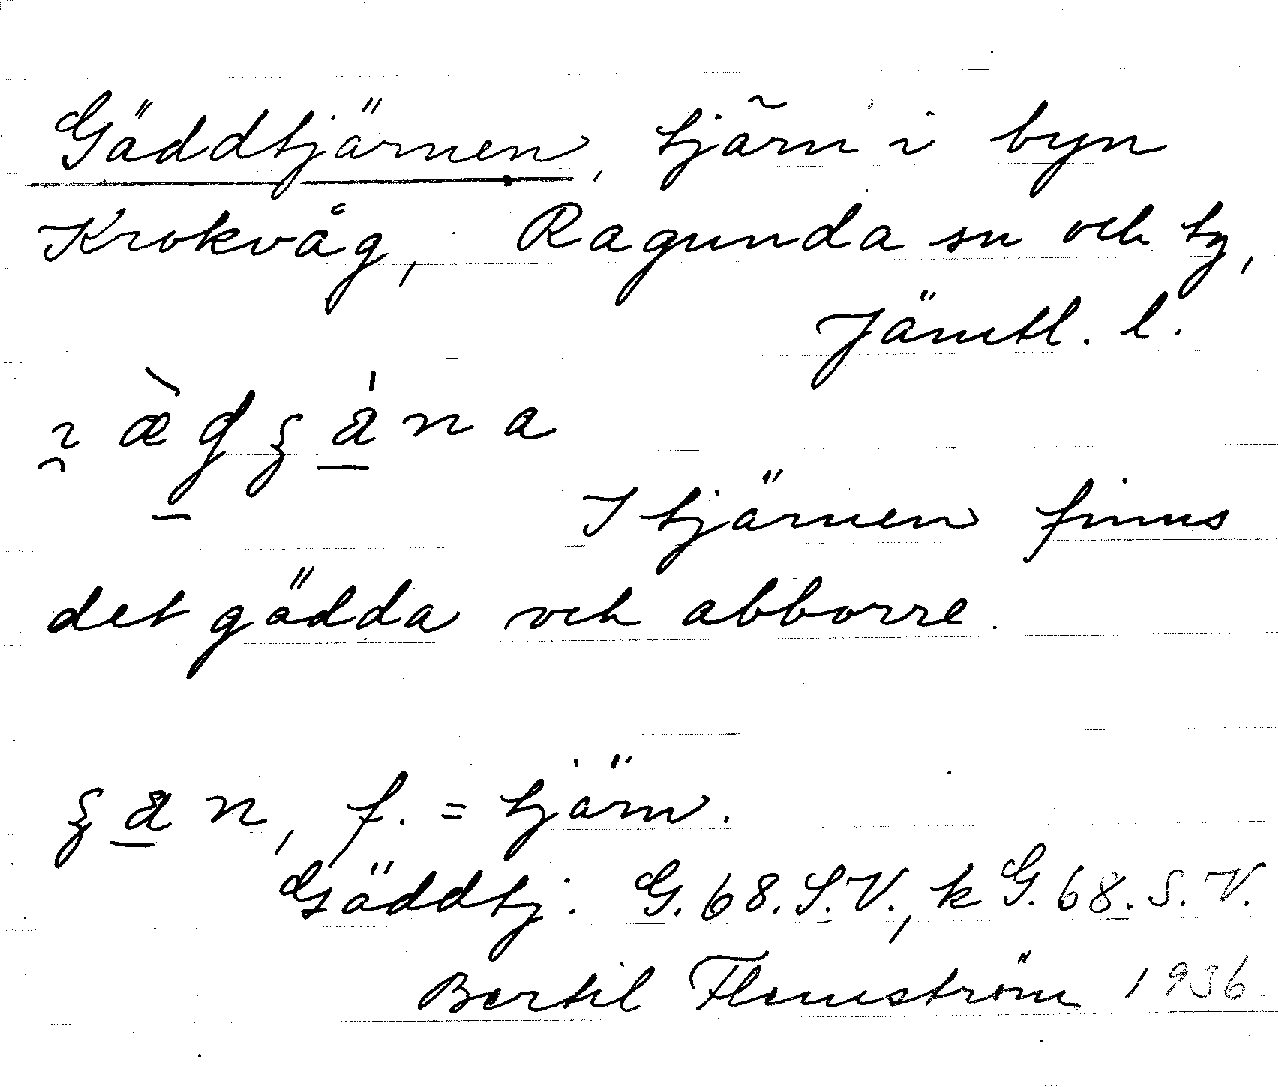 Gäddtjärnen, tjärn i byn
Krokvåg, Ragunda sn och tg,
Jämtl. l.
I tjärnen finns
det gädda och abborre.
f. = tjärn.
Gäddtj. G.68.S.V., k G.68.S.V.
Bertil Flemström 1936